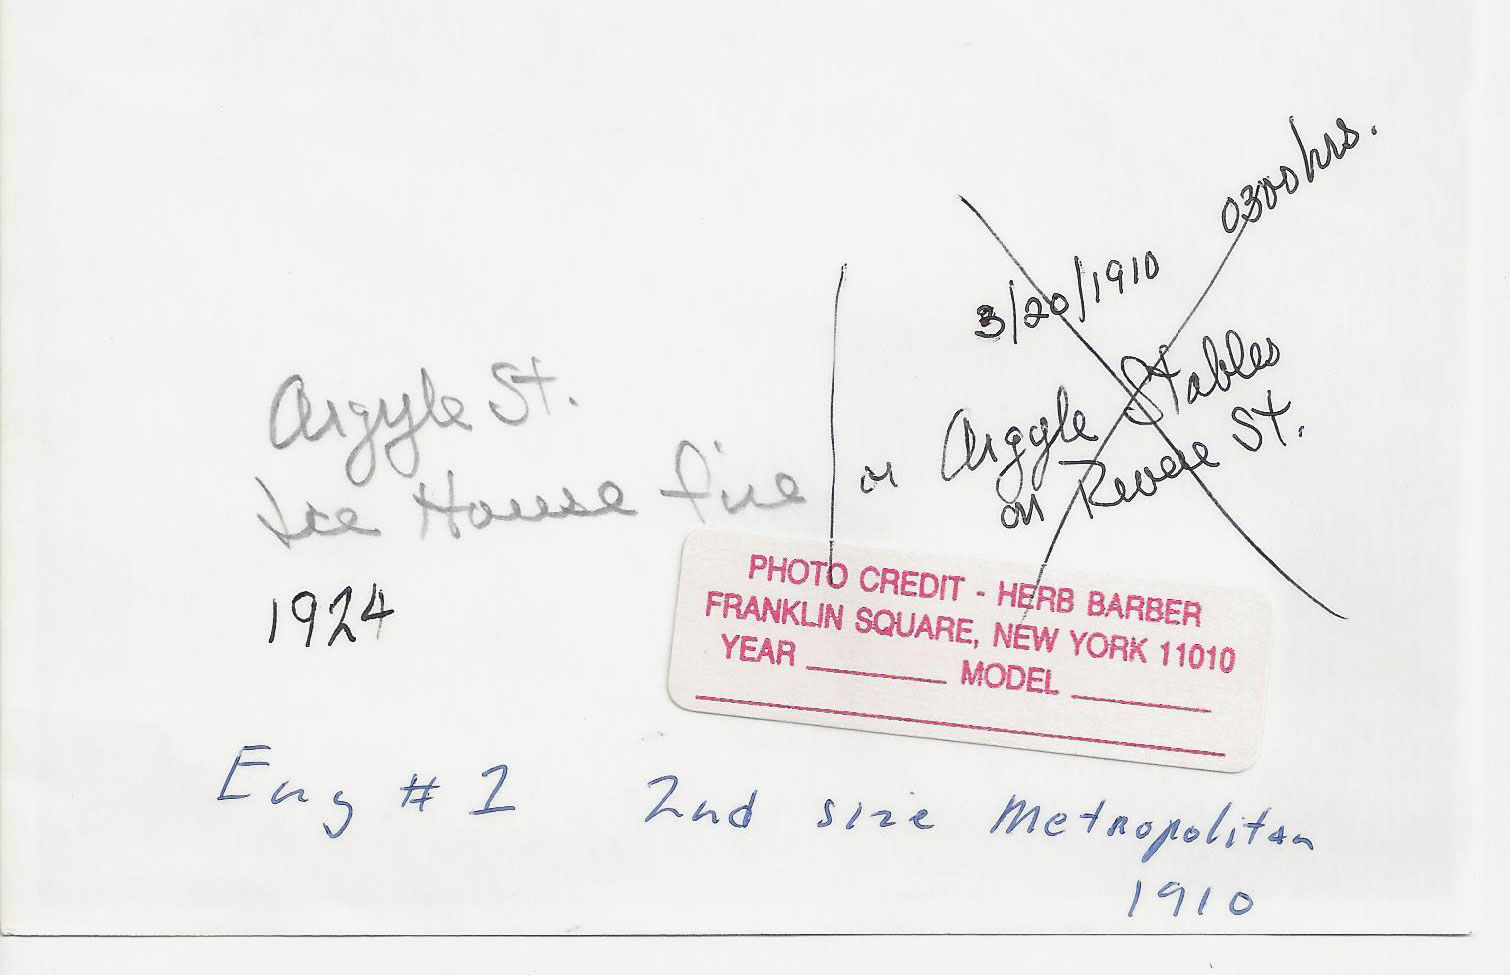 Argyle St.
Ice House fire
1924
3/20/1910 0300 hrs.
or Argyle Stables
on Revere St.
PHOTO CREDIT - HERB BARBER
FRANKLIN SQUARE, NEW YORK 11010
YEAR ________ MODEL ________
Eng # 1 2nd size Metropolitan
1910